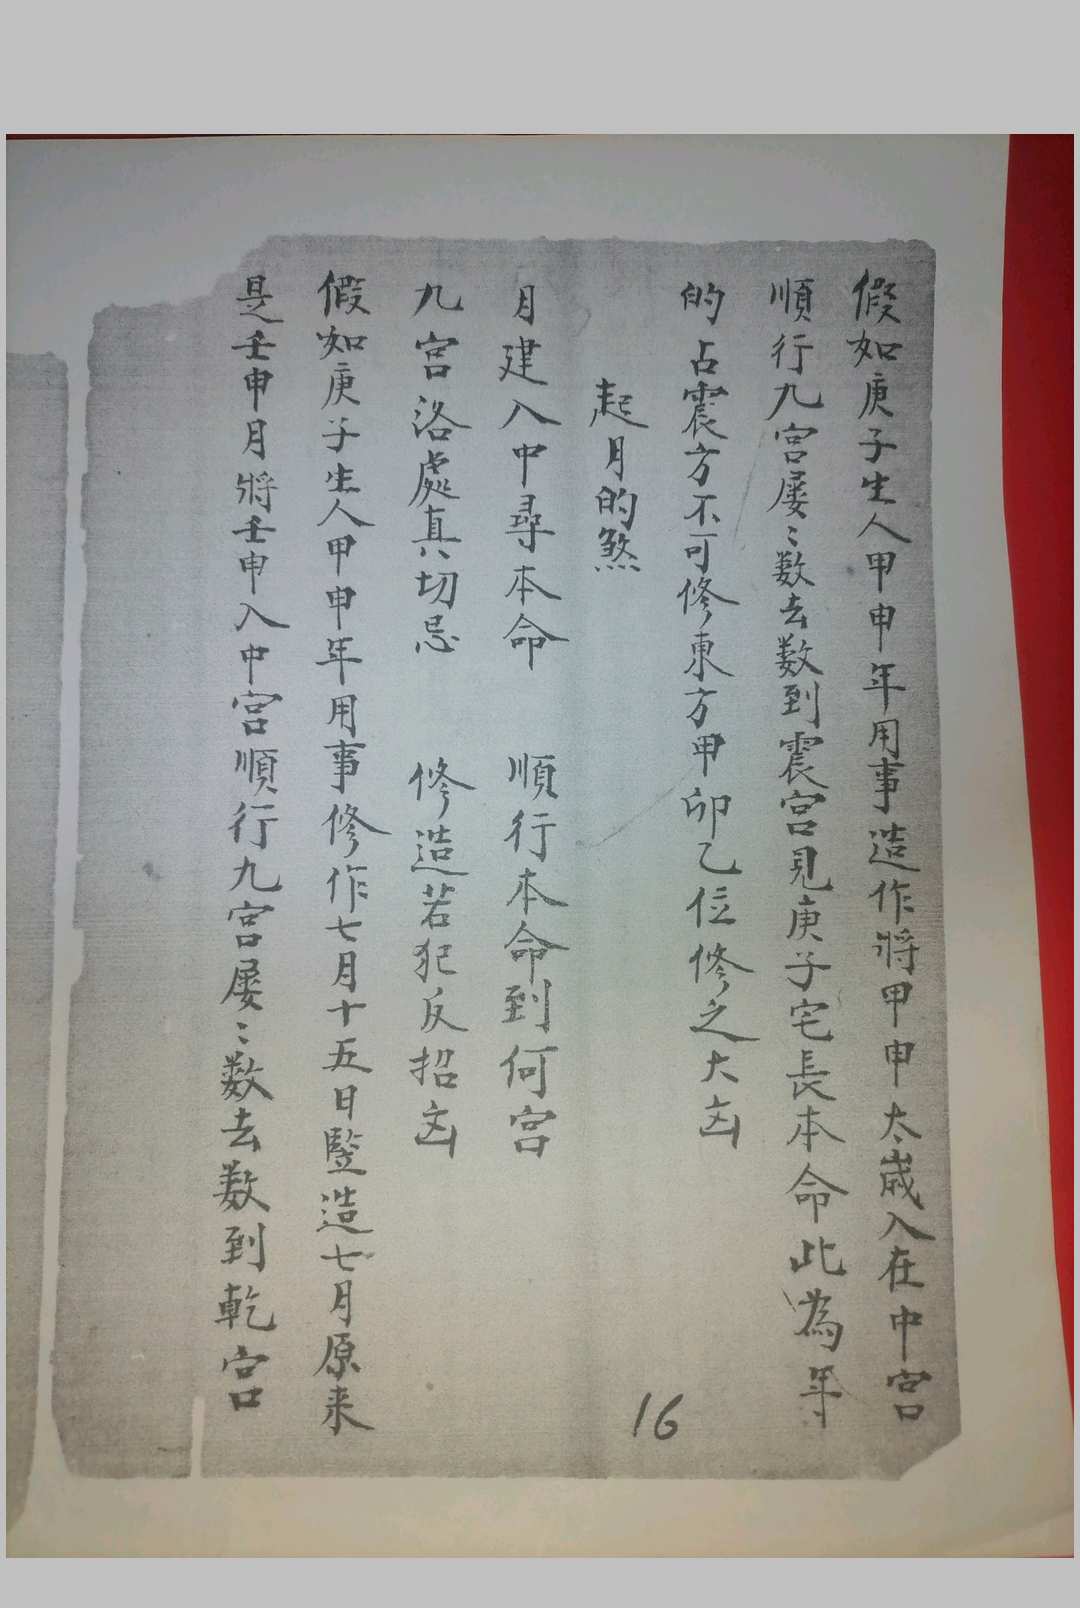 假如庚子生人甲申年用事造作將甲申太歲入在中宮
順行九宮屡〻数去数到震宮見庚子宅長本命此為年
的占震方不可修東方甲卯乙位修之大凶
起月的煞
月建入中尋本命 順行本命到何宮
九宮洛處真切忌 修造若犯反招凶
假如庚子生人甲申年用事修作七月十五日竪造七月原来
是壬申月將壬申入中宮順行九宮屡〻数去数到乾宮
16